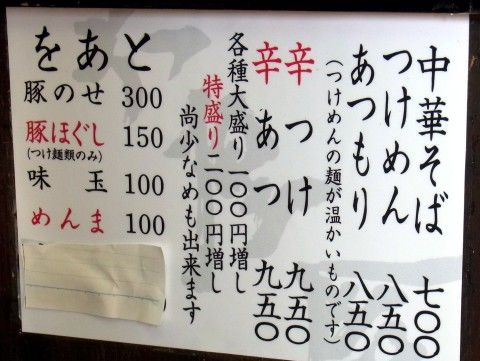 中華そば 七〇〇
つけめん 八五〇
あつもり 八五〇
(つけめんの麺が温かいものです)
辛つけ 九五〇
辛あつ 九五〇
各種大盛り一〇〇円増し
特盛り二〇〇円増し
尚少なめも出来ます
をあと
豚のせ 300
豚ほぐし 150
(つけ麺類のみ)
味玉 100
めんま 100